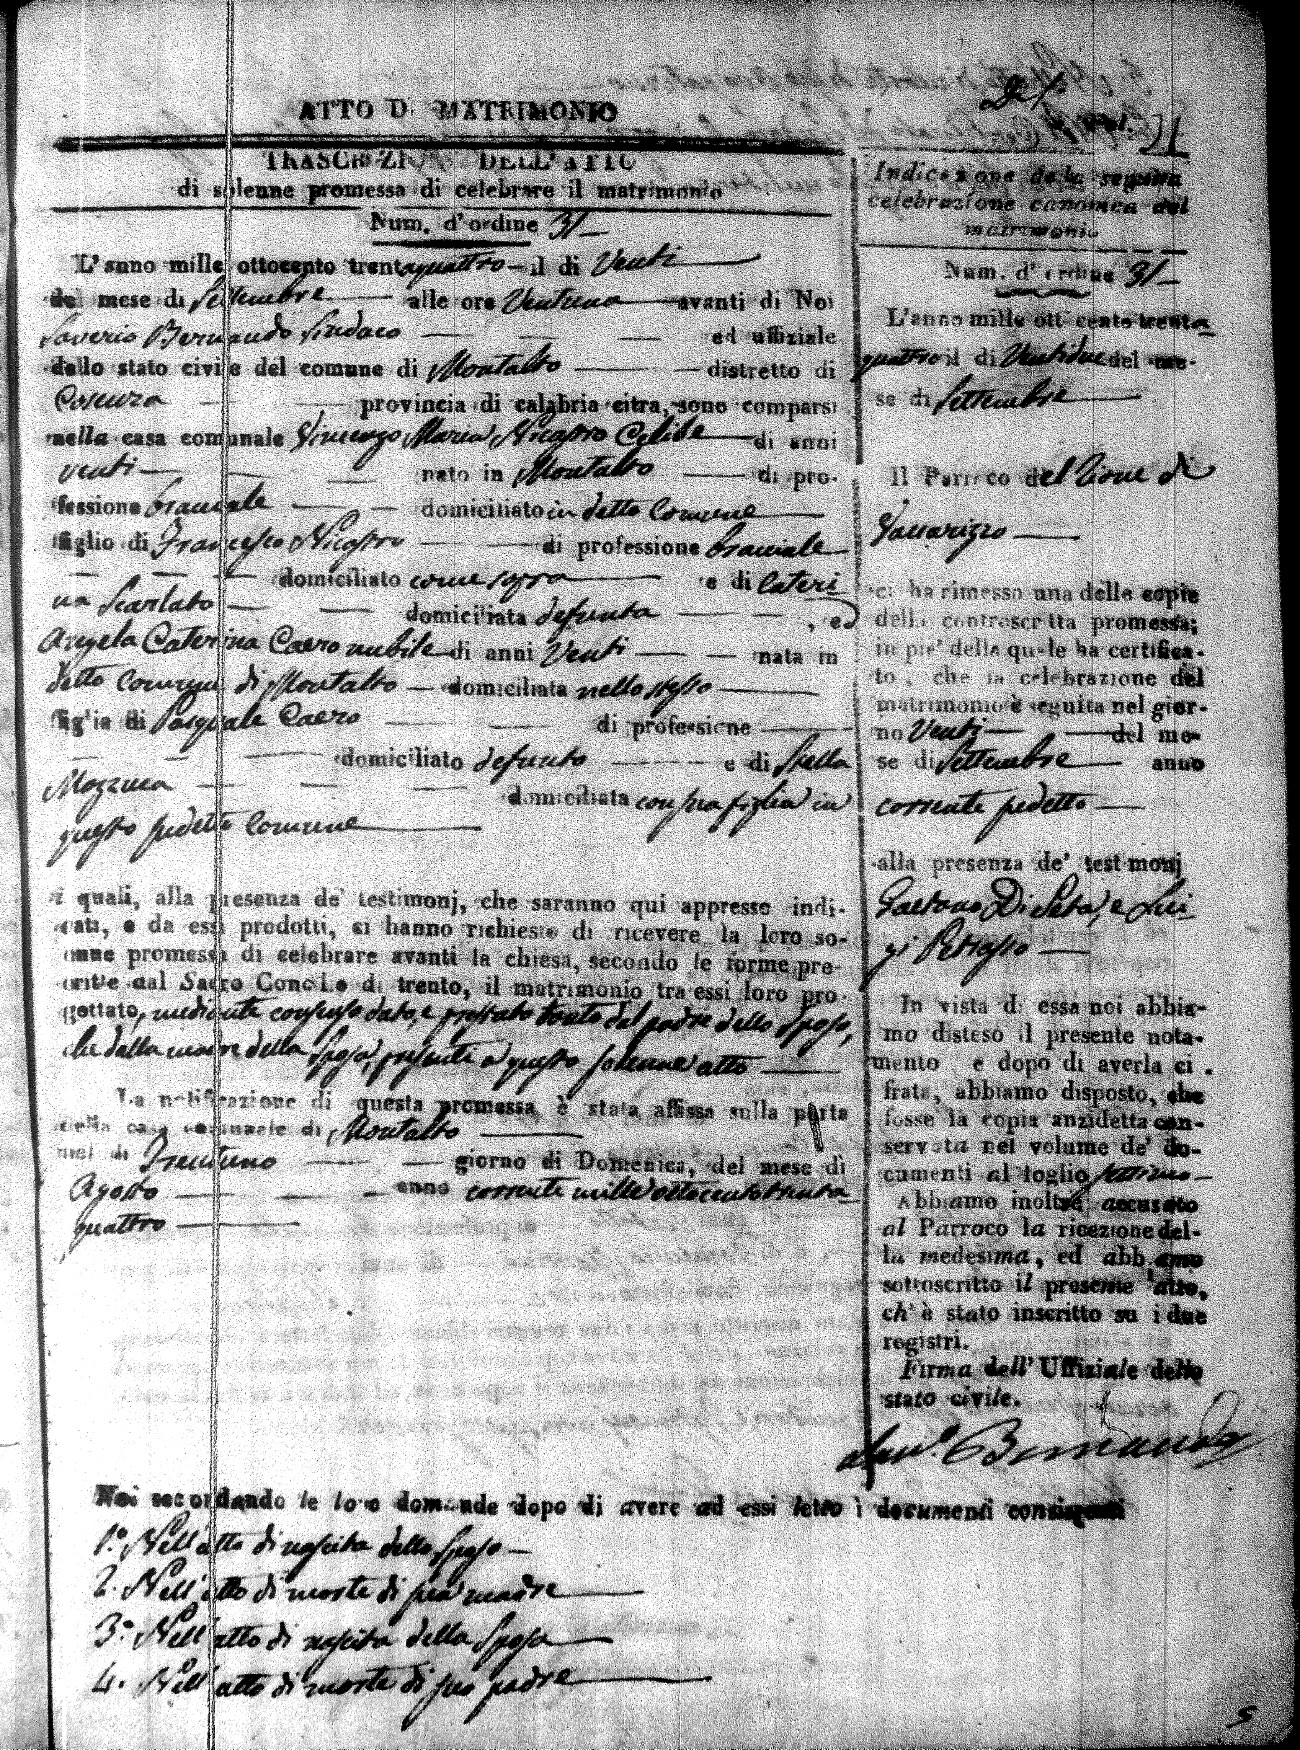 ATTO DI MATRIMONIO
31
TRASCRIZIONE DELL'ATTO
di solenne promessa di celebrare il matrimonio
Num. d'ordine 31
L'anno mille ottocento trentaquattro il dì Venti
del mese di Settembre alle ore Ventuna avanti di Noi
Saverio Bernaudo Sindaco ed uffiziale
dello stato civile del comune di Montalto distretto di
Cosenza provincia di calabria citra, sono comparsi
nella casa comunale Vincenzo Maria Nicastro Celibe di anni
venti nato in Montalto di pro-
fessione bracciale domiciliato in detto Comune
figlio di Francesco Nicastro di professione bracciale
domiciliato come sopra e di Cateri
na Scarlato domiciliata defunta , ed
Angela Caterina Caero nubile di anni Venti nata in
detto Comune di Montalto domiciliata nello stesso
figlia di Pasquale Caero di professione
domiciliato defunto e di Stella
Mazzuca domiciliata con sua figlia in
questo sudetto Comune
i quali, alla presenza de' testimonj, che saranno qui appresso indi-
cati, e da essi prodotti, ci hanno richiesto di ricevere la loro so-
enne promessa di celebrare avanti la chiesa, secondo le forme pre-
critte dal Sacro Concilio di trento, il matrimonio tra essi loro pro-
gettato, mediante consenso dato, e prestato tanto dal padre dello Sposo,
che dalla madre della Sposa, presenti a questo solenne atto
La notificazione di questa promessa è stata affissa sulla porta
della casa comunale di Montalto
nel dì Trentuno giorno di Domenica, del mese di
Agosto anno corrente mille ottocento trenta
quattro
Indicazione della seguita
celebrazione canonica del
matrimonio
Num. d'ordine 31
L'anno mille ottocento trenta
quattro il dì Ventidue del me-
se di Settembre
Il Parroco del Rione di
Vaccarizzo
ci ha rimesso una delle copie
della controscritta promessa;
in piè della quale ha certifica-
to, che la celebrazione del
matrimonio è seguita nel gior-
no Venti del me-
se di Settembre anno
corrente sudetto
alla presenza de' testimonj
Gaetano Di Seta, e Lui
gi Petrasso
In vista di essa noi abbia-
mo disteso il presente nota-
mento e dopo di averla ci
frata, abbiamo disposto, che
fosse la copia anzidetta con-
servata nel volume de' do-
cumenti al foglio
Abbiamo inoltre accusato
al Parroco la ricezione del-
la medesima, ed abbiamo
sottoscritto il presente atto,
ch' è stato inscritto su i due
registri.
Firma dell' Uffiziale dello
stato civile.
Sav.o Bernaudo
Noi secondando le loro domande dopo di avere ad essi letto i documenti consistenti
1.o Nell'atto di nascita dello Sposo
2. Nell'atto di morte di sua madre
3.o Nell'atto di nascita della Sposa
4. Nell'atto di morte di suo padre